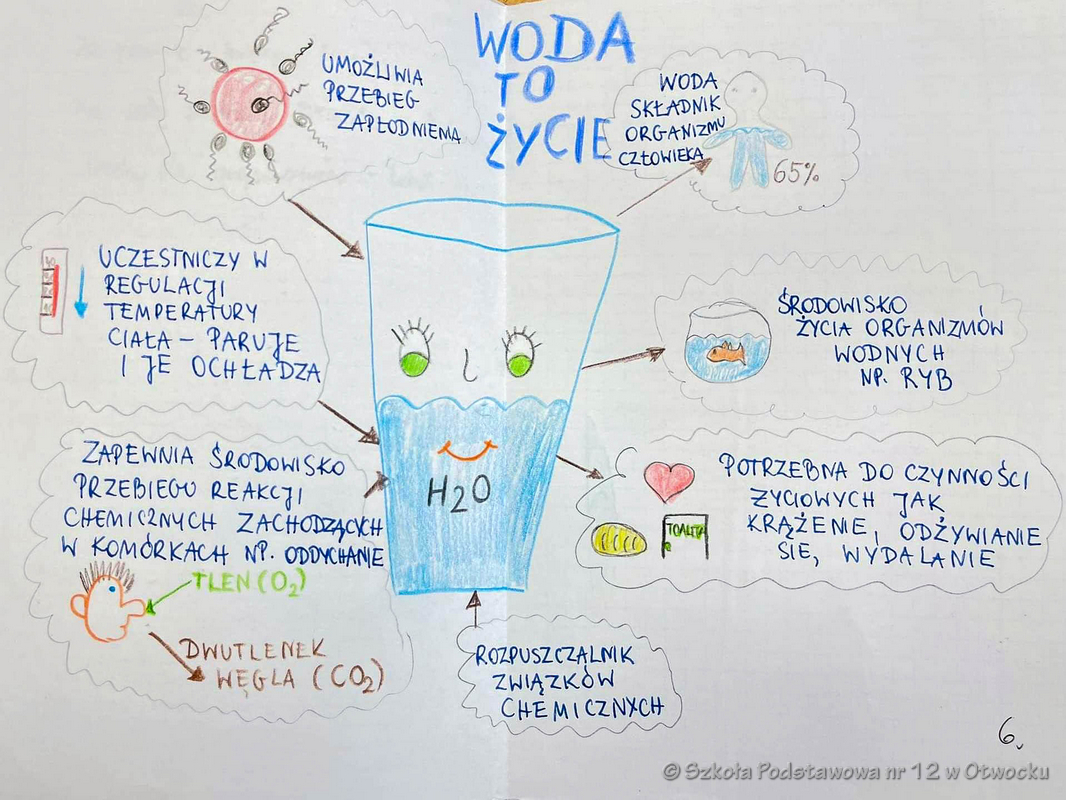 WODA
TO
ŻYCIE
UMOŻLIWIA
PRZEBIEG
ZAPŁODNIENIA
WODA
SKŁADNIK
ORGANIZMU
CZŁOWIEKA
65%
UCZESTNICZY W
REGULACJI
TEMPERATURY
CIAŁA - PARUJE
I JE OCHŁADZA
ŚRODOWISKO
ŻYCIA ORGANIZMÓW
WODNYCH
NP. RYB
ZAPEWNIA ŚRODOWISKO
PRZEBIEGU REAKCJI
CHEMICZNYCH ZACHODZĄCYCH
W KOMÓRKACH NP. ODDYCHANIE
TLEN (O₂)
DWUTLENEK
WĘGLA (CO₂)
H2O
POTRZEBNA DO CZYNNOŚCI
ŻYCIOWYCH JAK
KRĄŻENIE, ODŻYWIANIE
SIĘ, WYDALANIE
TOALETA
ROZPUSZCZALNIK
ZWIĄZKÓW
CHEMICZNYCH
6.
© Szkoła Podstawowa nr 12 w Otwocku